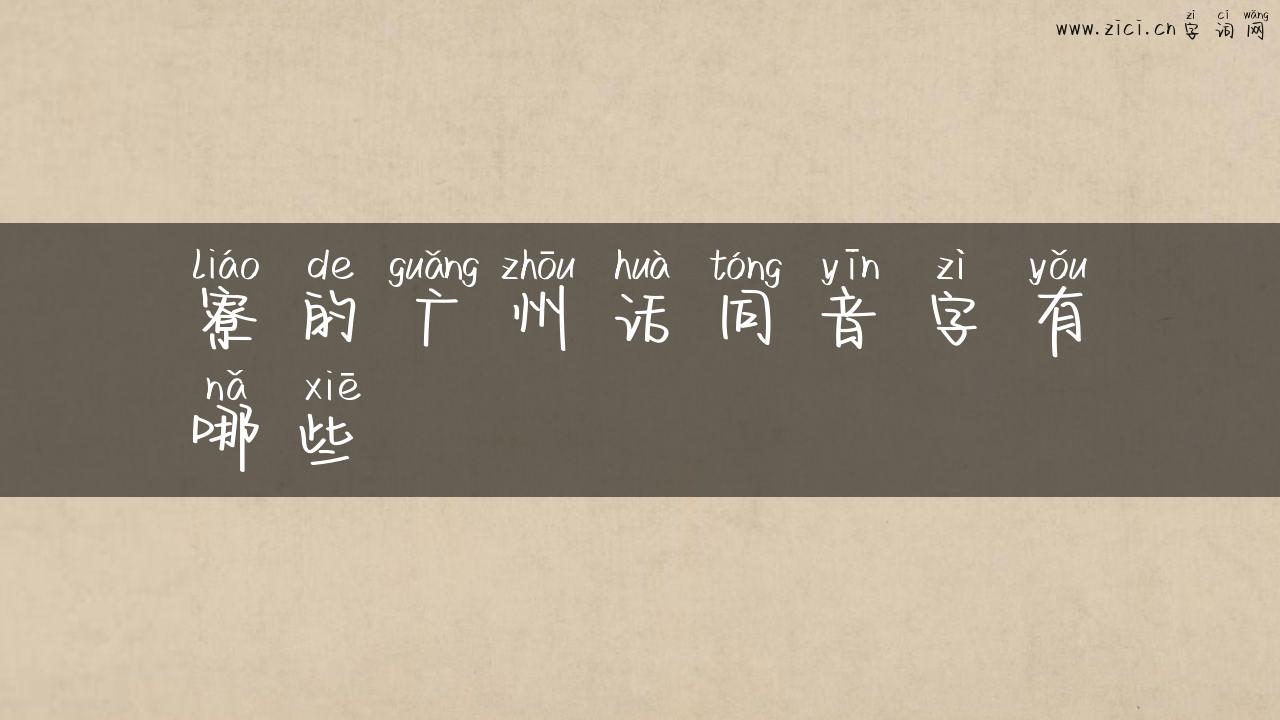 zì cí wǎng
www.zici.cn 字 词 网
liáo de guǎng zhōu huà tóng yīn zì yǒu
寮 的 广 州 话 同 音 字 有
nǎ xiē
哪 些